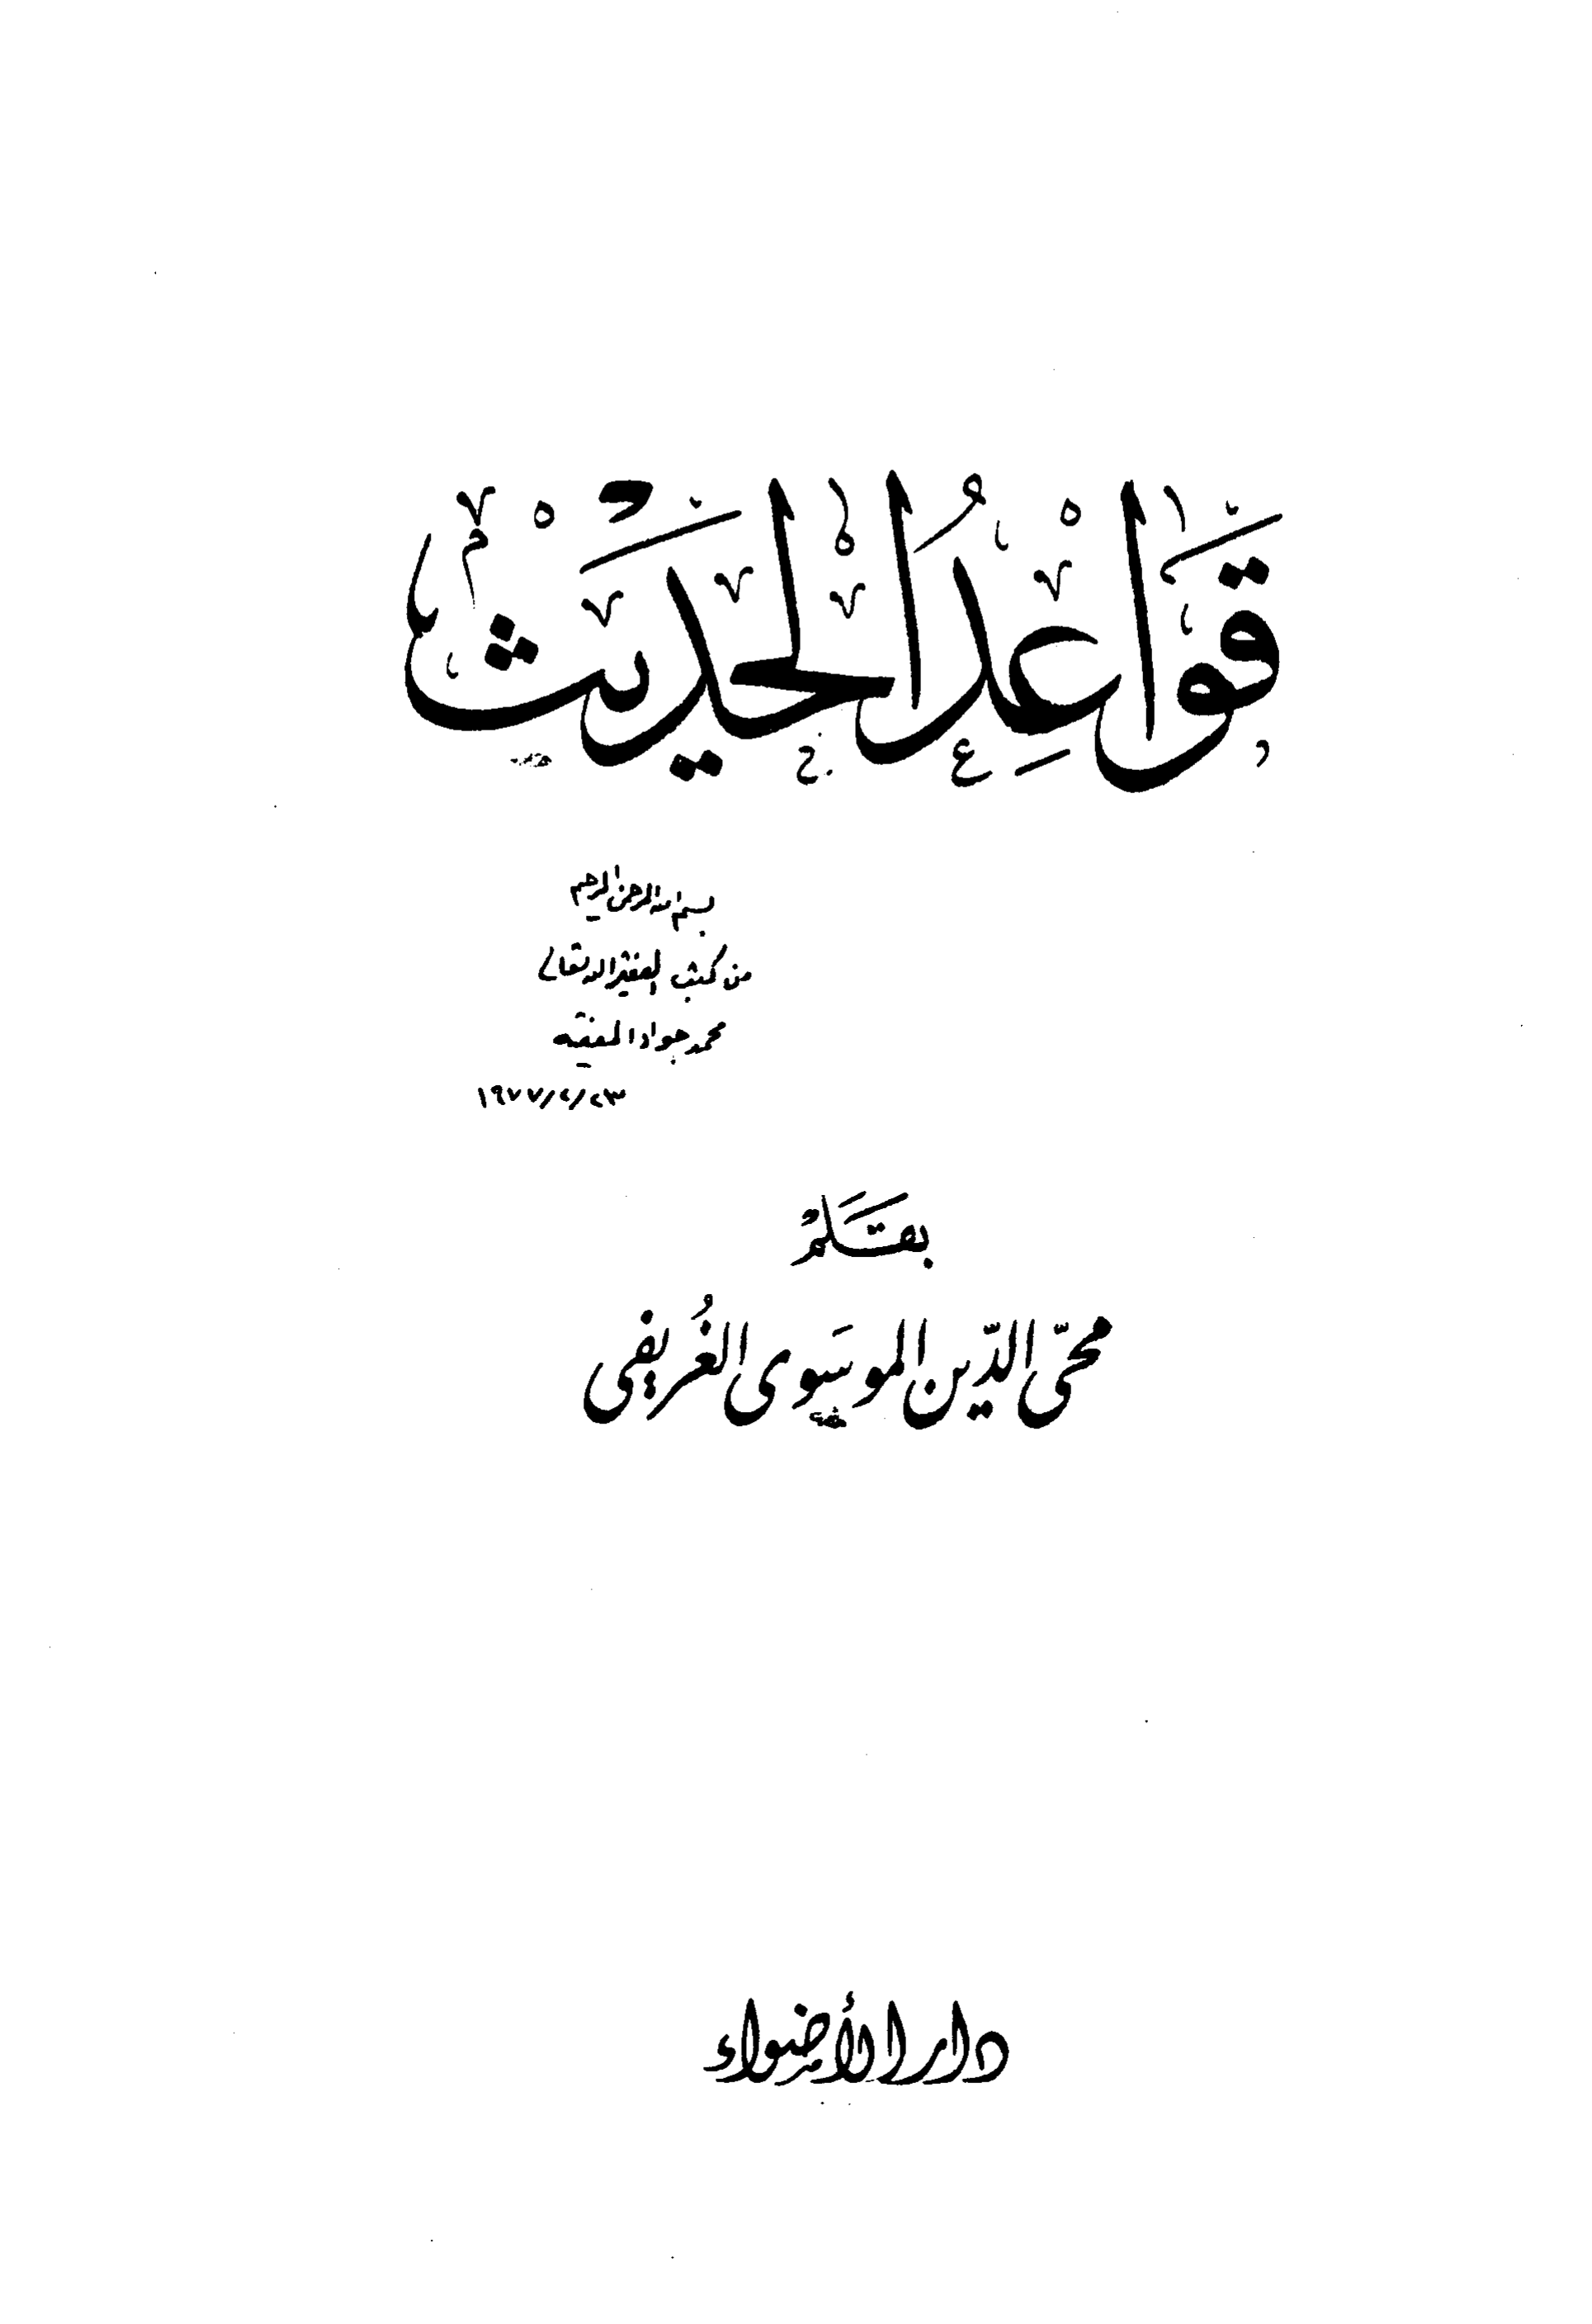 قَوَاعِدُ الْحَدِيْث
بسم الله الرحمن الرحيم
من كتب الفقير الى الله تعالى
محمد جواد الفقيه
١٩٧٧/٢/٢٣
بقَلَم
محيّ الدّين الموسَوي الغُريفي
دار الأضواء